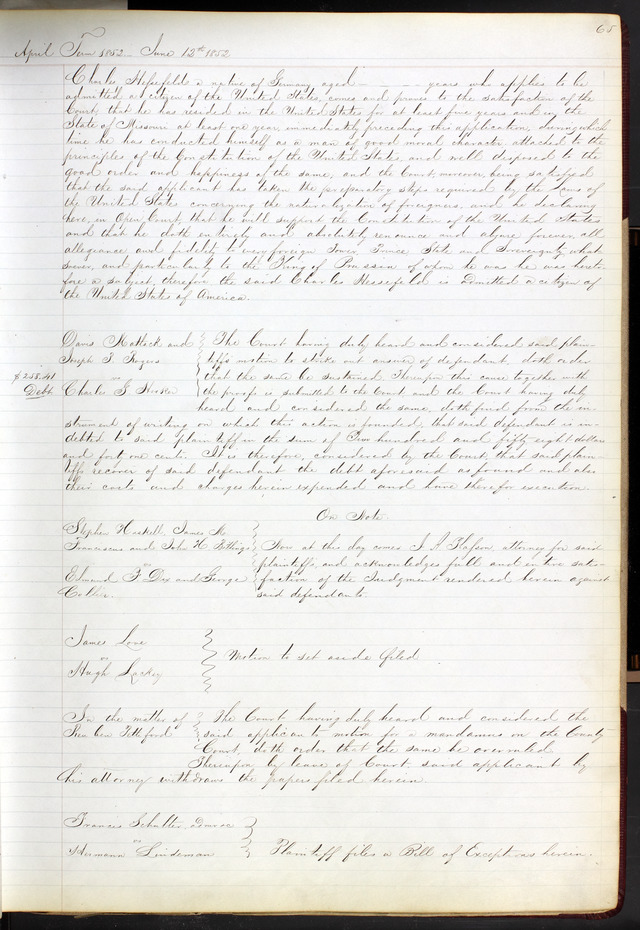 65
April Term 1852 – June 12th 1852
Charles Hessefeld a native of Germany aged – – – years who applies to be
admitted a citizen of the United States, comes and proves to the satisfaction of the
Court, that he has resided in the United States for at least five years and in the
State of Missouri at least one year, immediately preceding this application, during which
time he has conducted himself as a man of good moral character, attached to the
principles of the Constitution of the United States, and well disposed to the
good order and happiness of the same, and the Court, moreover, being satisfied
that the said applicant has taken the preparatory steps required by the Laws of
the United States concerning the naturalization of foreigners, and he declaring
here, in Open Court, that he will support the Constitution of the United States
and that he doth entirely and absolutely renounce and abjure forever all
allegiance and fidelity to every foreign Power, Prince State and Sovereignty what
soever, and particularly to the King of Prussia of whom he was he was hereto
fore a subject, therefore the said Charles Hessefeld is admitted a citizen of
the United States of America.
Davis Mattock and
Joseph S.
vs
Charles G.
$258.41
Debt
The Court having duly heard and considered said plain-
tiffs motion to strike out answer of defendant doth order
that the same be sustained. Thereupon this cause together with
the proofs is submitted to the Court and the Court having duly
heard and considered the same, doth find from the in-
strument of writing on which this action is founded, that said defendant is in-
debted to said plaintiff in the sum of Two hundred and fifty eight dollars
and forty one cents. It is therefore, considered by the Court, that said plain-
tiffs recover of said defendant the debt aforesaid as found and also
their costs and charges herein expended and have therefor execution.
On Note.
Stephen Haskell, James M.
Franciscus and John H.
vs
Edmund F. Dix and George
Collier.
Now at this day comes attorney for said
plaintiffs, and acknowledges full and entire satis-
faction of the Judgment rendered herein against
said defendants.
James Love
vs
Hugh Lackey
Motion to set aside filed
In the matter of
Reuben Tettford
The Court having duly heard and considered the
said applicants motion for a mandamus on the County
Court, doth order that the same be overruled
Thereupon by leave of Court said applicant by
his attorney withdraws the papers filed herein
Francis Schulter, admr &c
vs
Hermann Lindeman
Plaintiff files a Bill of Exceptions herein.